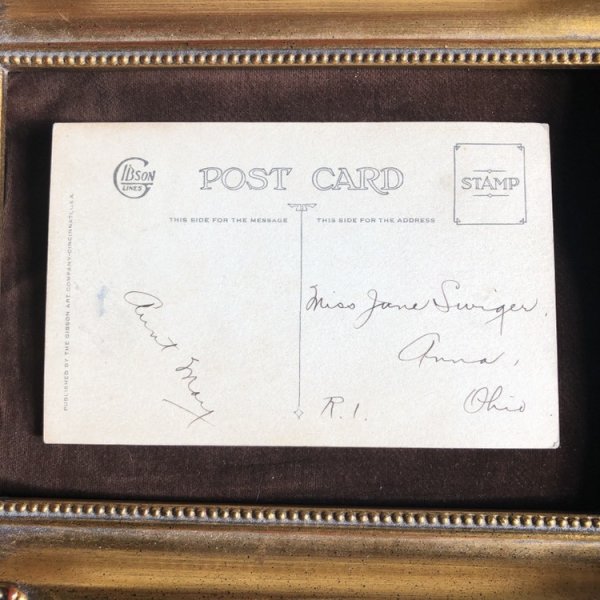 GIBSON
LINES
POST CARD
STAMP
THIS SIDE FOR THE MESSAGE
THIS SIDE FOR THE ADDRESS
PUBLISHED BY THE GIBSON ART COMPANY-CINCINNATI, U.S.A.
Aunt May
Miss Jane Swiger.
Anna,
R. 1. Ohio